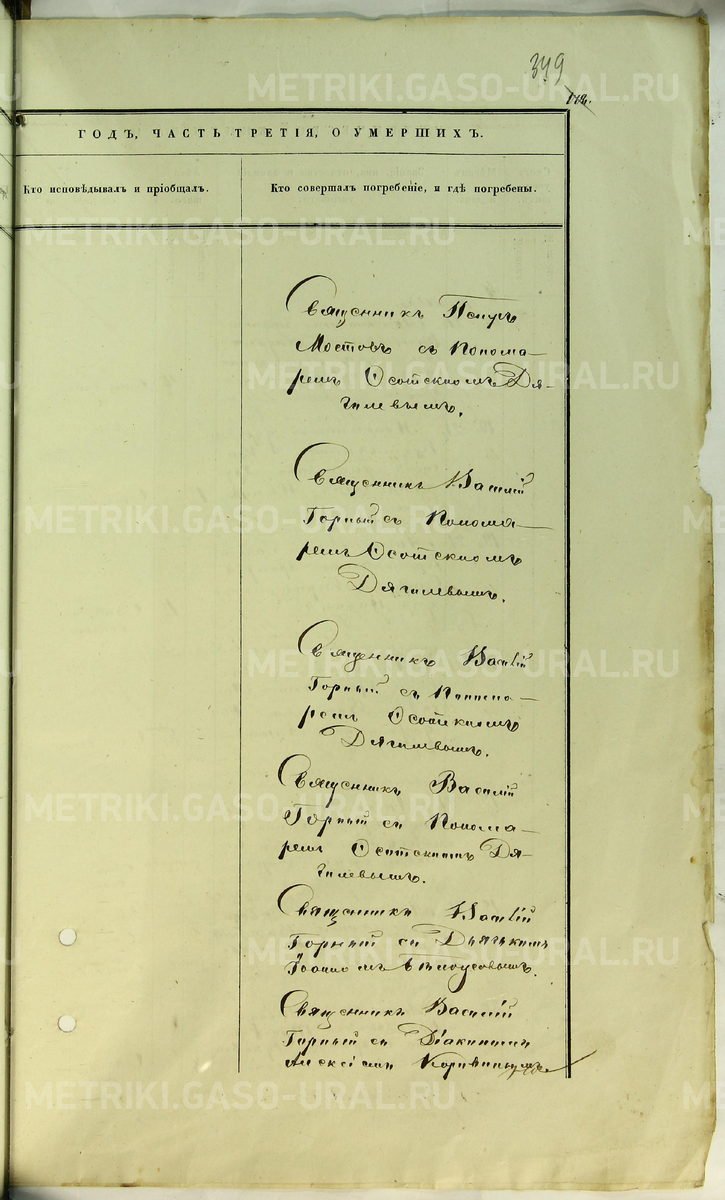 349
112.
ГОДЪ, ЧАСТЬ ТРЕТІЯ, О УМЕРШИХЪ.
Кто исповѣдывалъ и пріобщалъ.
Кто совершалъ погребеніе, и гдѣ погребены.
Священникъ Петръ
Мостовъ съ Понома-
ремъ Ѳеотекномъ Дя-
гилевымъ.
Священникъ Василій
Горный съ Понома-
ремъ Ѳеотекномъ
Дягилевымъ.
Священникъ Василій
Горный съ Понома-
ремъ Ѳеотекномъ
Дягилевымъ.
Священникъ Василій
Горный съ Понома-
ремъ Ѳеотекномъ Дя-
гилевымъ.
Священникъ Василій
Горный съ Дьячкомъ
Іоанномъ Бѣлоусовымъ.
Священникъ Василій
Горный съ Діакономъ
Алексіемъ
METRIKI.GASO-URAL.RU